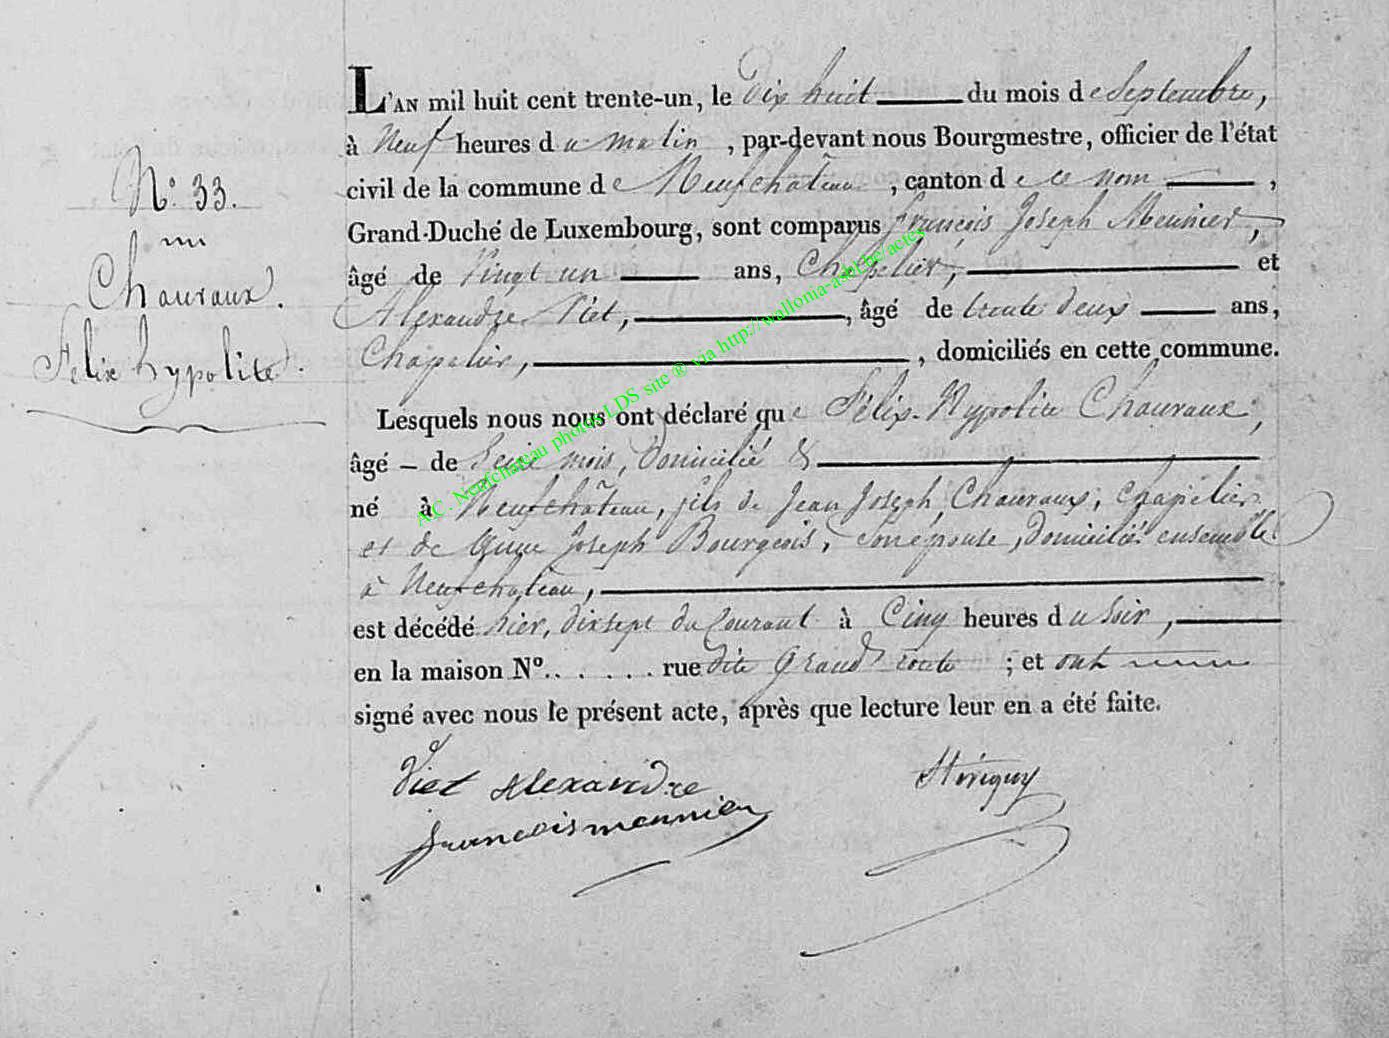 N.° 33.
Chauvaux.
Félix hypolite.
L'AN mil huit cent trente-un, le Dix huit du mois de Septembre,
à Neuf heures du matin, par-devant nous Bourgmestre, officier de l'état
civil de la commune de Neufchâteau, canton de ce nom,
Grand-Duché de Luxembourg, sont comparus françois Joseph Meunier,
âgé de Vingt un ans, Chapelier, et
Alexandre Viet, âgé de trente deux ans,
Chapelier, domiciliés en cette commune.
Lesquels nous nous ont déclaré que Félix-Hypolite Chauvaux,
âgé de Seize mois, Domicilié &
né à Neufchâteau, fils de Jean Joseph Chauvaux, Chapelier
et de Anne Joseph Bourgeois, Son épouse, Domiciliés ensemble
à Neufchateau,
est décédé hier, dix sept du Courant à Cinq heures du Soir,
en la maison N°...... rue dite Grand route ; et ont
signé avec nous le présent acte, après que lecture leur en a été faite.
Viet Alexandre
francois meunier
A.C. Neufchateau photos LDS site ® via http://wallonia-asbl.be/actes